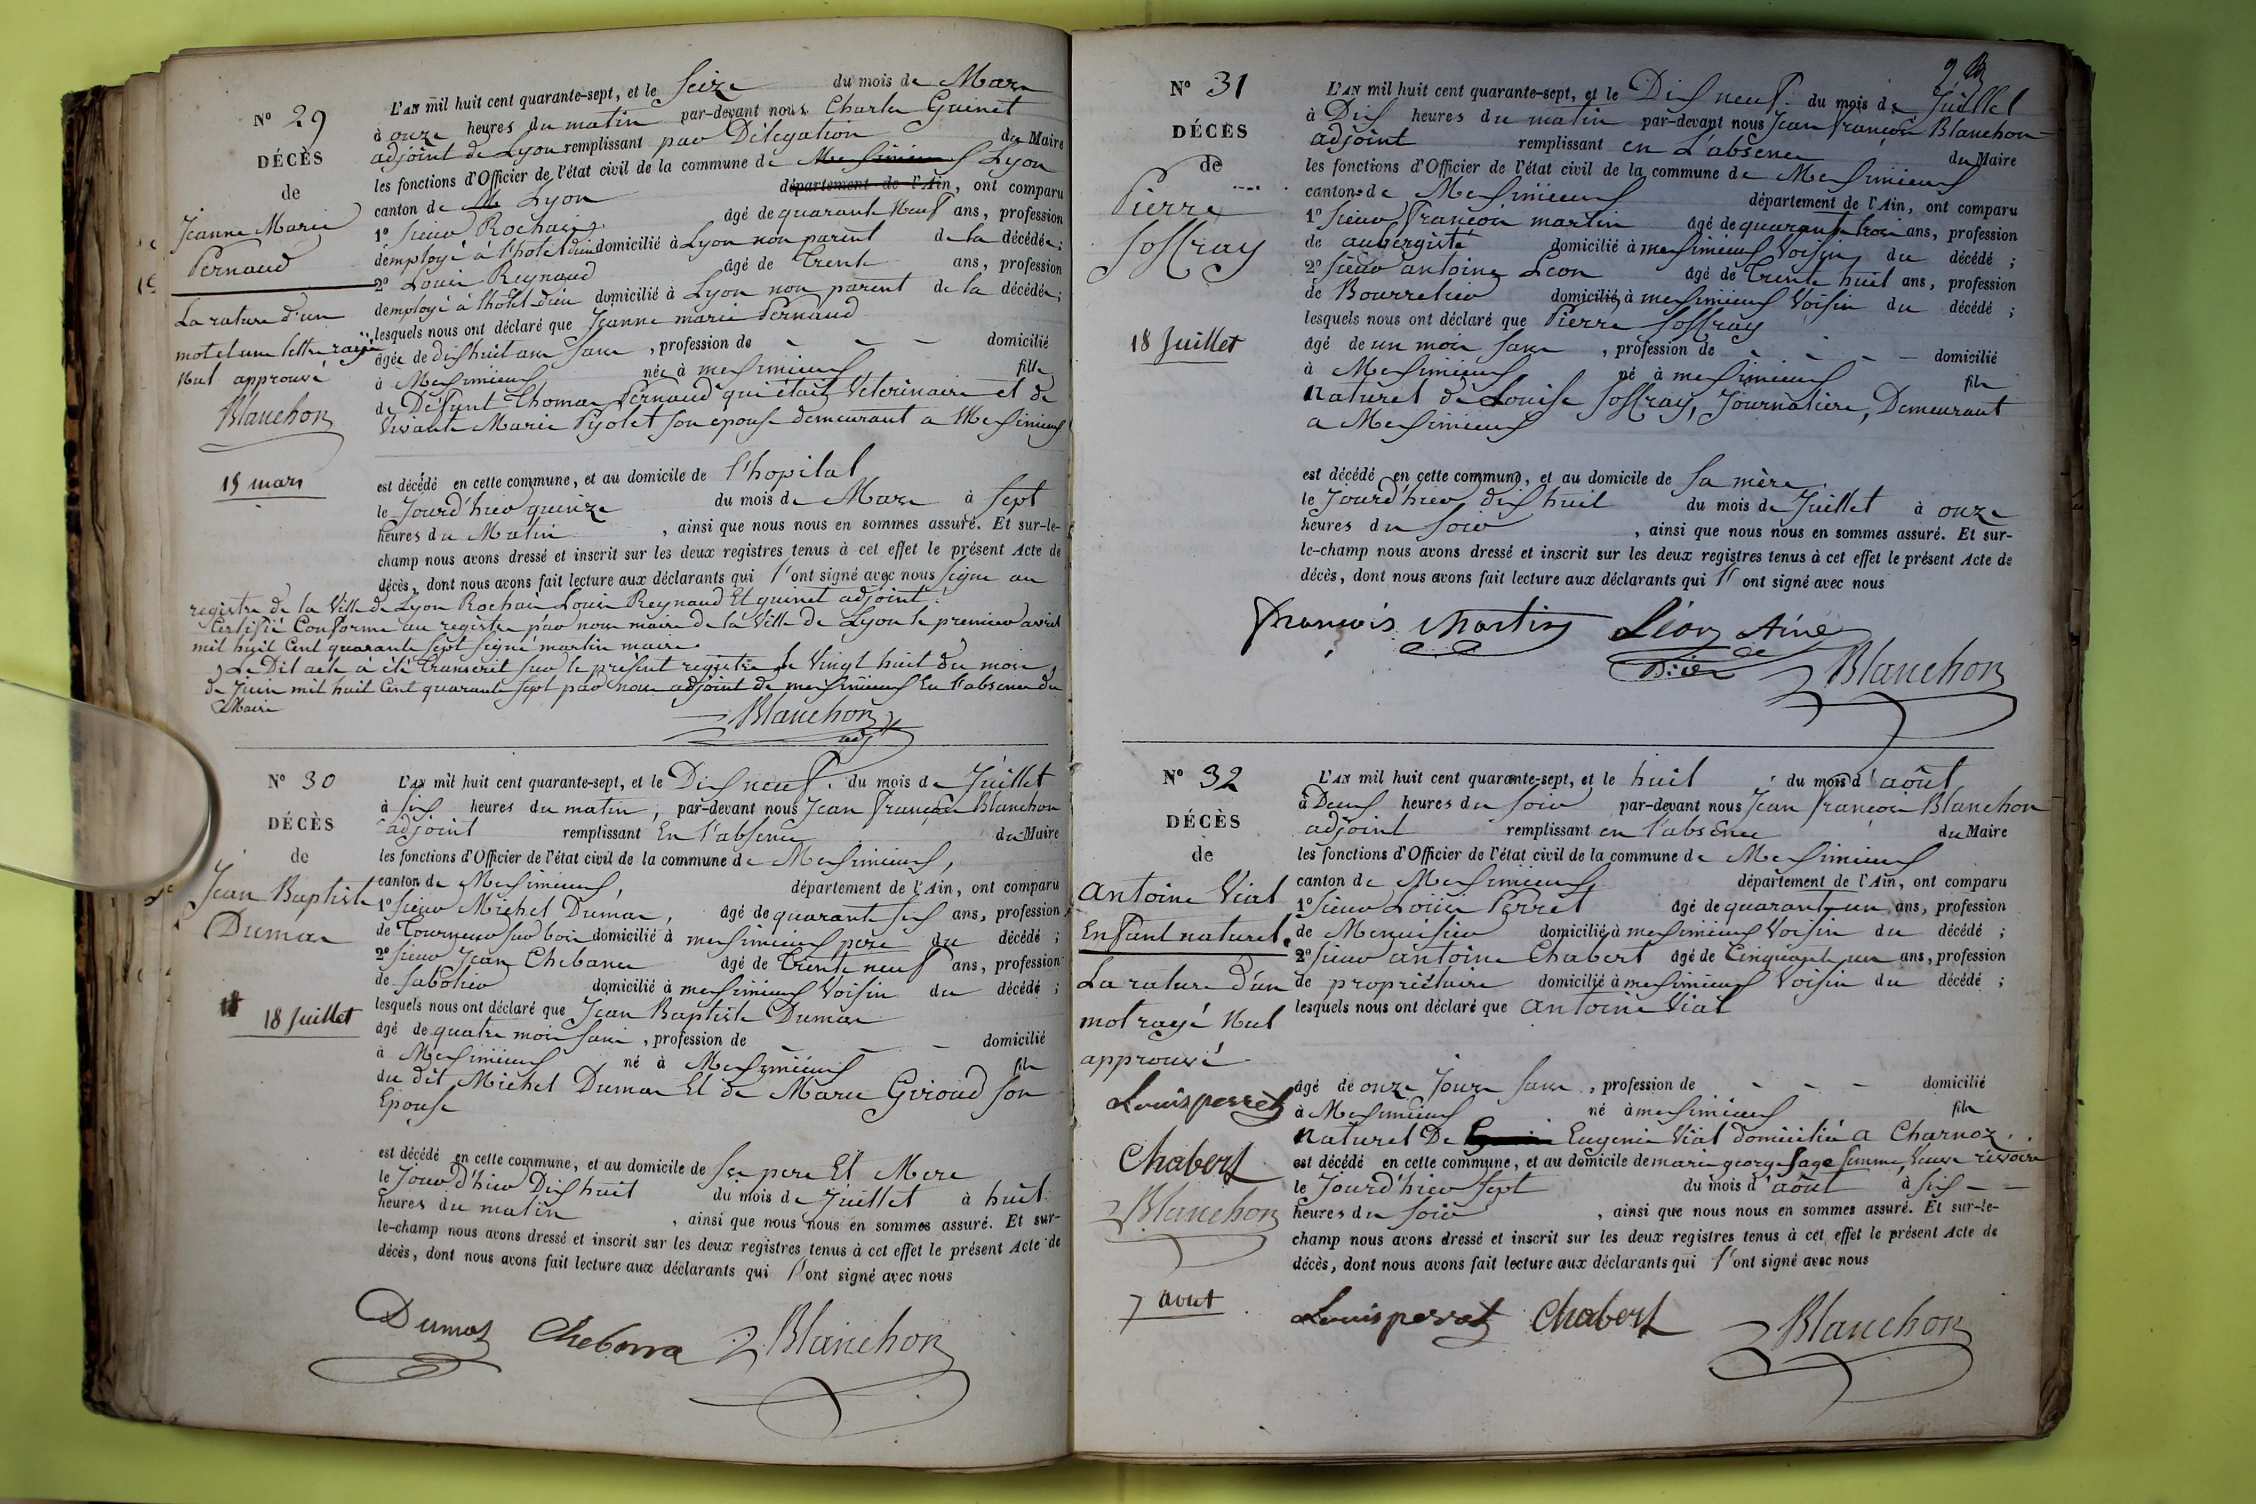 N° 29
DÉCÈS
de
Jeanne Marie
Pernaud
La rature d'un
mot et une lettre rayé
Nul approuvé
Blanchon
15 mars
L'AN mil huit cent quarante-sept, et le Seize du mois de Mars
à onze heures du matin par-devant nous Charles Guinet
adjoint de Lyon remplissant par Délégation du Maire
les fonctions d'Officier de l'état civil de la commune de Meximieux Lyon
canton de M Lyon département de l'Ain, ont comparu
1° Sieur Rochaix âgé de quarante Neuf ans, profession
d'employé à l'hotel dieu domicilié à Lyon non parent de la décédée ;
2° Louis Reynaud âgé de Trente ans, profession
d'employé à l'hotel-dieu domicilié à Lyon non parent de la décédée ;
lesquels nous ont déclaré que Jeanne marie Pernaud
âgée de dixhuit ans Sans , profession de - - - domicilié
à Meximieux née à meximieux fille
de Défunt Thomas Pernaud qui était Veterinaire et de
Vivante Marie Pijolet son epouse demeurant a Meximieux
est décédé en cette commune, et au domicile de l'hopital
le Jourd'hier quinze du mois de Mars à Sept
heures du Matin , ainsi que nous nous en sommes assuré. Et sur-le-
champ nous avons dressé et inscrit sur les deux registres tenus à cet effet le présent Acte de
décès, dont nous avons fait lecture aux déclarants qui l'ont signé avec nous Signé au
registre de la Ville de Lyon Rochaix Louis Reynaud Et guinet adjoint.
Certifié Conforme au registre par nous maire de la Ville de Lyon le premier avril
mil huit Cent quarante Sept Signé martin maire
Le Dit acte à été Transcrit sur le présent registre le Vingt huit du mois
de Juin mil huit Cent quarante Sept par nous adjoint de meximieux En l'absence du
Maire
Blanchon
adj
N° 30
DÉCÈS
de
Jean Baptiste
Dumas
18 Juillet
L'AN mil huit cent quarante-sept, et le Dix neuf du mois de Juillet
à Six heures du matin, par-devant nous Jean françois Blanchon
adjoint remplissant En l'absence du Maire
les fonctions d'Officier de l'état civil de la commune de Meximieux,
canton de Meximieux, département de l'Ain, ont comparu
1° Sieur Michel Dumas, âgé de quarante Six ans, profession
de Tourneur sur bois domicilié à meximieux pere du décédé ;
2° Sieur Jean Chebance âgé de Trente neuf ans, profession
de Sabotier domicilié à meximieux Voisin du décédé ;
lesquels nous ont déclaré que Jean Baptiste Dumas
âgé de quatre mois Sans , profession de - - - domicilié
à Meximieux né à Meximieux fils
du dit Michel Dumas Et de Marie Giroud son
Epouse
est décédé en cette commune, et au domicile de Ses pere Et Mere
le Jour d'hier Dix huit du mois de Juillet à huit
heures du matin , ainsi que nous nous en sommes assuré. Et sur-
le-champ nous avons dressé et inscrit sur les deux registres tenus à cet effet le présent Acte de
décès, dont nous avons fait lecture aux déclarants qui l'ont signé avec nous
Dumas Blanchon
N° 31
DÉCÈS
de
Pierre
Joffray
18 Juillet
L'AN mil huit cent quarante-sept, et le Dix neuf du mois de Juillet
à Dix heures du matin par-devant nous Jean françois Blanchon
adjoint remplissant en L'absence du Maire
les fonctions d'Officier de l'état civil de la commune de Meximieux
canton de Meximieux département de l'Ain, ont comparu
1° Sieur françois martin âgé de quarante trois ans, profession
de aubergiste domicilié à meximieux Voisin du décédé ;
2° Sieur antoine Leon âgé de Trente huit ans, profession
de Bourrelier domicilié à meximieux Voisin du décédé ;
lesquels nous ont déclaré que Pierre Joffray
âgé de un mois Sans , profession de - - - domicilié
à Meximieux né à meximieux fils
naturel de Louise Joffray, Journaliere, Demeurant
a Meximieux
est décédé en cette commune, et au domicile de Sa mère
le Jourd'hier dix huit du mois de Juillet à onze
heures du Soir , ainsi que nous nous en sommes assuré. Et sur-
le-champ nous avons dressé et inscrit sur les deux registres tenus à cet effet le présent Acte de
décès, dont nous avons fait lecture aux déclarants qui l'ont signé avec nous
françois Martin Léon Ainé
Blanchon
N° 32
DÉCÈS
de
Antoine Vial
Enfant naturel.
La rature d'un
mot rayé Nul
approuvé
Louis perret
Chabert
Blanchon
7 aout
L'AN mil huit cent quarante-sept, et le huit du mois d'août
à Deux heures du Soir par-devant nous Jean françois Blanchon
adjoint remplissant en l'absence du Maire
les fonctions d'Officier de l'état civil de la commune de Meximieux
canton de Meximieux département de l'Ain, ont comparu
1° Sieur Louis Perret âgé de quarante un ans, profession
de Menuisier domicilié à meximieux Voisin du décédé ;
2° Sieur antoine Chabert âgé de Cinquante un ans, profession
de propriétaire domicilié à meximieux Voisin du décédé ;
lesquels nous ont déclaré que antoine Vial
âgé de onze Jours Sans , profession de - - - domicilié
à Meximieux né à meximieux fils
naturel De Eugenie Vial domiciliée a Charnoz.
est décédé en cette commune, et au domicile de marie george Sage femme, Veuve
le Jourd'hier Sept du mois d'août à Six - -
heures du Soir , ainsi que nous nous en sommes assuré. Et sur-le-
champ nous avons dressé et inscrit sur les deux registres tenus à cet effet le présent Acte de
décès, dont nous avons fait lecture aux déclarants qui l'ont signé avec nous
Louis perret Chabert Blanchon